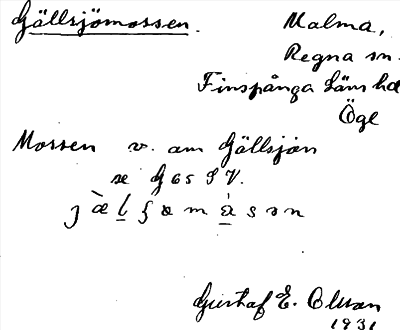 Gällsjömossen.
Malma,
Regna sn.
Finspånga läns hd
Ögl
Mossen v. om Gällsjön
se G 65 S V.
Gustaf E. Olsson
1931